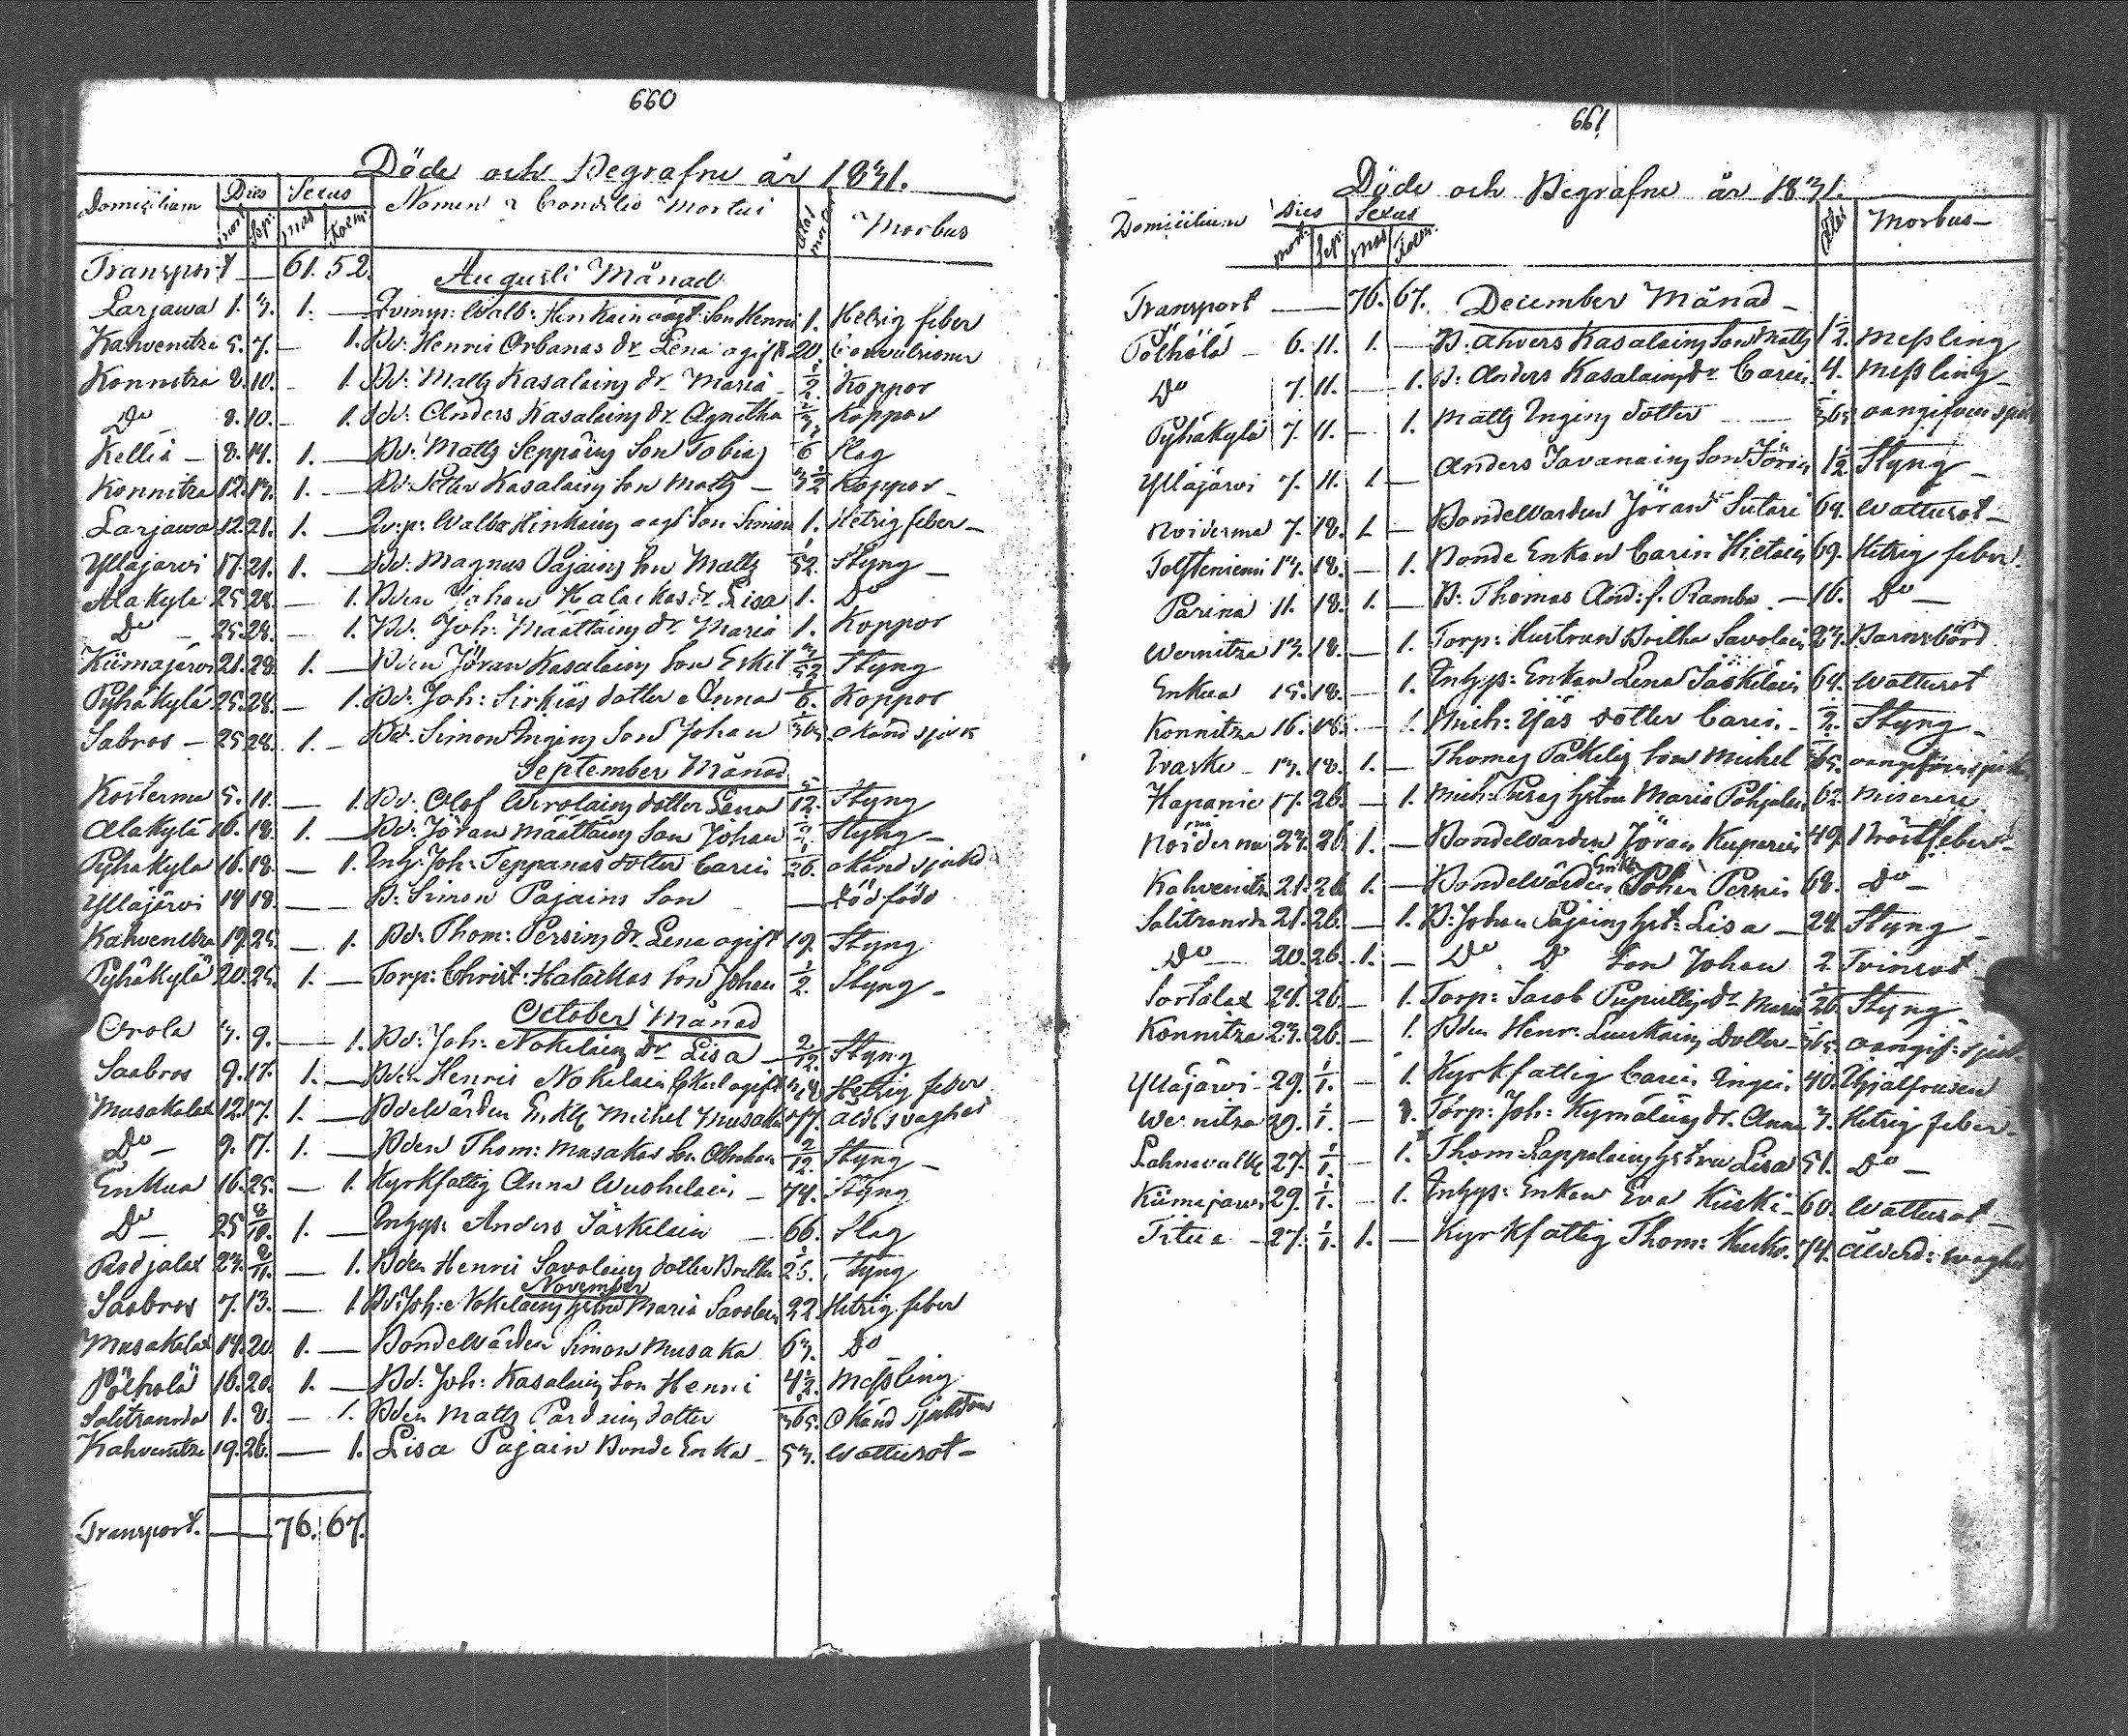 660
Döde och Begrafne år 1831.
Domicilium Dies Sexus Nomen & Conditio Mortui Ætas mort Morbus
mort Sep. Mas Foem.
Transport — 61. 52.
Augusti Månad
Larjawa 1. 3. 1. — Qvinsp: Walb: Hinkain oägt: Son Henric 1. Hetsig feber
Kahvenitza 5. 7. — 1. Bd: Henric Orbanas dr Lena ogift 20. Convulsioner
Konnitza 8. 10. — 1. Bd: Matts Kasalains dr Maria 1/2. Koppor
Do 8. 10. — 1. Bd: Anders Kasalains dr Agnetha Koppor
Kelliä — 8. 14. 1. — Bd: Matts Seppäins Son Tobias 6 Slag
Konnitza 12. 13. 1. — Bd: Petter Kasalains Son Matts — 3 1/2 Koppor —
Larjawa 12. 21. 1. — Qv:p: Walb: Hinkains oägt Son Simon 1. Hetsig feber —
Ylläjärvi 17. 21. 1. — Bd: Magnus Pajains Son Matts 1/52. Styng —
Alakylä 25. 28. — 1. Bden Johan Halackas dr Lisa 1. Do
Do — 25. 28. — 1. Bd. Joh: Määttains dr Maria 1. Koppor
Kiimajärvi 21. 28. 1. — Bden Jöran Kasalains Son Eskil 3/52 Styng
Pyhäkylä 25. 28. — 1. Bd: Joh: Sirkiäs dotter Anna 1/6. Koppor
Sabros — 25 28. 1. — Bd. Simon Ingins Son Johan okänd sjuk
September Månad
Kosterma 5. 11. — 1. Bd. Olof Wirolains dotter Lena 5/12. Styng
Alakylä 16. 18. 1. — Bd: Jöran Määttäins Son Johan Styng —
Pyhäkylä 16. 18. — 1. Inh: Joh: Teppanas dotter Carin 1/26. okänd sjukd
Ylläjärvi 14 18. — — B: Simon Pajains Son — dödfödd
Kahvenitza 19. 25. — 1. Bd: Thom: Persins dr Lena ogift 19. Styng
Pyhäkylä 20. 25. 1. — Torp: Christ: Hatackas Son Johan 1/2. Styng —
October Månad
Orola 3. 9. — 1. Bd: Joh: Nokelains dr Lisa — 2/12. Styng
Saabros 9. 17. 1. — Bden Henric Nokelain Eskel ogift Hetsig feber
Musakalax 12. 17. 1. — Bdewärden Enkl: Michel Musaka 77. Ålds svaghet
Do — 9. 17. 1. — Bden Thom: Musakas Son Abraham 2/12. Styng —
Enkua 16. 25. — 1. Kyrkfattig Anna Wuohelain — 74. Styng
Do — 25 1. — Inhys: Anders Jäskelain — 66. Slag
Pardjalax 23. — 1. Bden Henric Savolains dotter Britta Styng
November
Saabros 7. 13. — 1. Bd: Joh: Nokelains hstru Maria Savolain 22 Hetsig feber
Musakalax 14. 20. 1. — Bondewärden Simon Musaka 63. Do
Pölhölä 16. 20. 1. — Bd: Joh: Kasalains Son Henric 4 1/2. Messling
Salitranda 1. 8. — 1. Bden Matts Pardains dotter 1/365. Okänd sjukdom
Kahvenitza 19. 26. — 1. Lisa Pajain Bonde Enka — 53. Wattusot —
Transport. — — 76. 67.
661
Döde och Begrafne år 1831.
Domicilium Dies Sexus Ætas Morbus —
mort. Sep. Mas Foem.
Transport — 76. 67. December Månad —
Pölhölä — 6. 11. 1. — B: Ahvers Kasalains Son Matts 1/2. Messling
Do 7. 11. — 1. B: Anders Kasalains dr Carin 4. Messling
Pyhäkylä 7. 11. — 1. Matts Ingins dotter — 1/365 oangifven sjukd
Ylläjärvi 7. 11. 1. — Anders Tavanains Son Jöran 1/2 Styng —
Noiderma 7. 18. 1. — Bondewärden Jöran Sutari 64. Wattusot —
Tolsteniemi 13. 18. — 1. Bonde Enkan Carin Hietain 69. Hetsig feber.
Parina 11. 18. 1. — B. Thomas And: s. Rambo — 16. Do —
Wernitza 13. 18. — 1. Torp: Hustrun Britha Savolain 23. Barnsbörd
Enkua 15. 18. — 1. Inhys: Enkan Lena Jäskelain 64. Wattusot
Konnitza 16. 18. — 1. Mich: Yjäs dotter Carin — 1/2. Styng —
Ivaska — 13. 18. 1. — Thomas Päkelis Son Michel 1/365. oangifven sjukd
Hapanie 17. 26. — 1. Mich: hstru Maria Pohjalain 62. Miserere
Noiderma 23. 26 1. — Bondewärden Jöran Kuparin 49. Bröstfeber —
Kahvenitza 21. 26. 1. — Bondewärden Enkl: Johan Persin 68. Do —
Salitranda 21. 26. — 1. B: Johan Pajains hst: Lisa — 24. Styng —
Do — 20. 26. 1. — Do D Son Johan 2. Tvinsot —
Sortalax 24. 26. — 1. Torp: Jacob Puputtis dr Maria 1/26. Styng —
Konnitza 23. 26. — 1. Bden Henr: Luukains Dotter — 1/365. oangif: sjukd
Ylläjärvi — 29. 1/1. — 1. Kyrkfattig Carin Ingin 40. Ihjälfrusen
Wernitza 29. 1/1. — 1. Torp: Joh: Kymäläins dr. Anna 3. Hetsig feber —
Lahnavalk: 27. 1/1. — 1. Thom: Lappalains hstru Lisa 51. Do —
Kiimajärvi 29. 1/1. — 1. Inhys: Enkan Eva Kiiski — 60. Wattusot —
Titua — 27. 1/1. 1. — Kyrkfattig Thom: Kurko. 74. Ålderd: svaghet